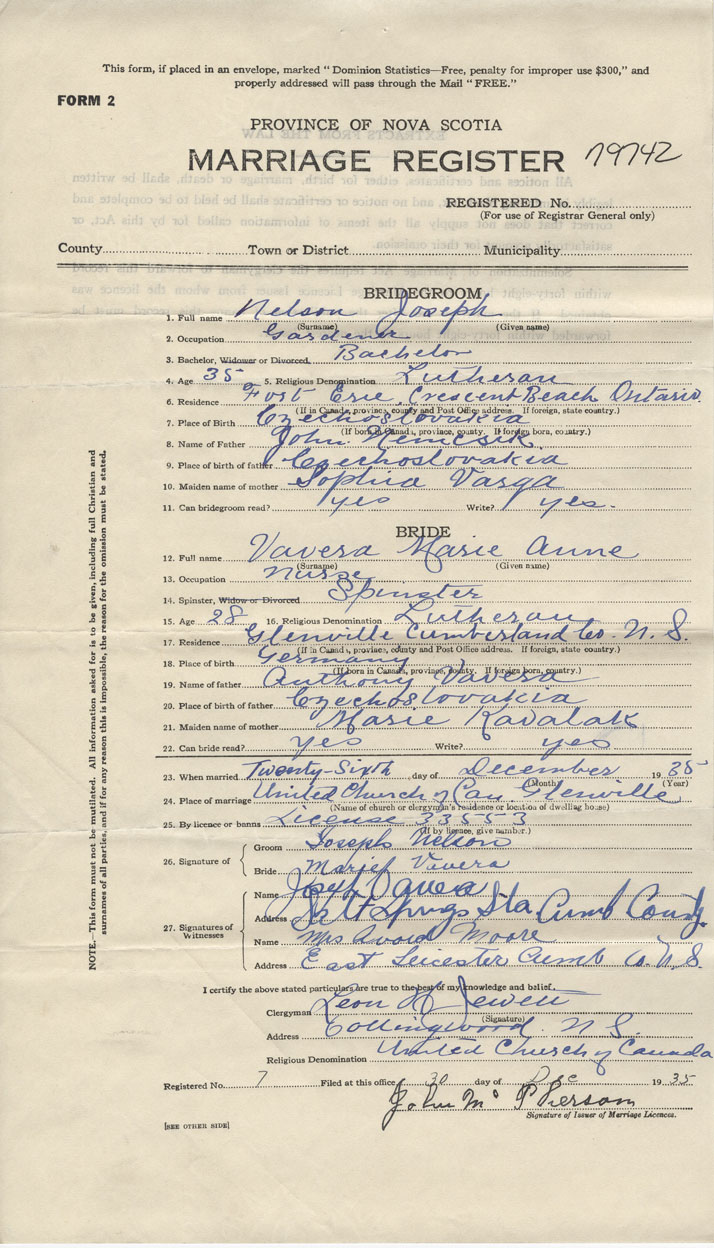 This form, if placed in an envelope, marked "Dominion Statistics—Free, penalty for improper use $300," and
properly addressed will pass through the Mail "FREE."
FORM 2
PROVINCE OF NOVA SCOTIA
MARRIAGE REGISTER 79742
REGISTERED No.
(For use of Registrar General only)
County Town or District Municipality
BRIDEGROOM
1. Full name Nelson Joseph
(Surname) (Given name)
2. Occupation Gardener
3. Bachelor, Widower or Divorced Bachelor
4. Age 35 5. Religious Denomination Lutheran
6. Residence Fort Erie, Crescent Beach Ontario
(If in Canada, province, county and Post Office address. If foreign, state country.)
7. Place of Birth Czechoslovakia
(If born in Canada, province, county. If foreign born, country.)
8. Name of Father John Nemcsik
9. Place of birth of father Czechoslovakia
10. Maiden name of mother Sophia Varga
11. Can bridegroom read? yes Write? yes.
BRIDE
12. Full name Vavera Marie Anne
(Surname) (Given name)
13. Occupation Nurse
14. Spinster, Widow or Divorced Spinster
15. Age 28 16. Religious Denomination Lutheran
17. Residence Glenville Cumberland Co. N. S.
(If in Canada, province, county and Post Office address. If foreign, state country.)
18. Place of birth Germany
(If born in Canada, province, county. If foreign born, country.)
19. Name of father Anthony Vavera
20. Place of birth of father Czechoslovakia
21. Maiden name of mother Marie Kavalak
22. Can bride read? yes Write? yes
23. When married Twenty-Sixth day of December 1935
(Month) (Year)
24. Place of marriage United Church of Can. Glenville
(Name of church or clergyman's residence or location of dwelling house)
25. By licence or banns License 33553
(If by licence, give number.)
26. Signature of
Groom Joseph Nelson
Bride Vavera
27. Signatures of
Witnesses
Name
Address Salt Springs Sta. Cumb County
Name Mrs Moore
Address East Leicester Cumb Co. N.S.
I certify the above stated particulars are true to the best of my knowledge and belief.
Clergyman Leon H Jewett
(Signature)
Address Collingwood. N S.
Religious Denomination United Church of Canada
Registered No. 7 Filed at this office 30 day of Dec 1935
John Mc Pherson
Signature of Issuer of Marriage Licences.
[SEE OTHER SIDE]
NOTE.—This form must not be mutilated. All information asked for is to be given, including full Christian and
surnames of all parties, and if for any reason this is impossible, the reason for the omission must be stated.